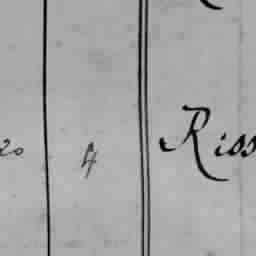 20 4 Riss